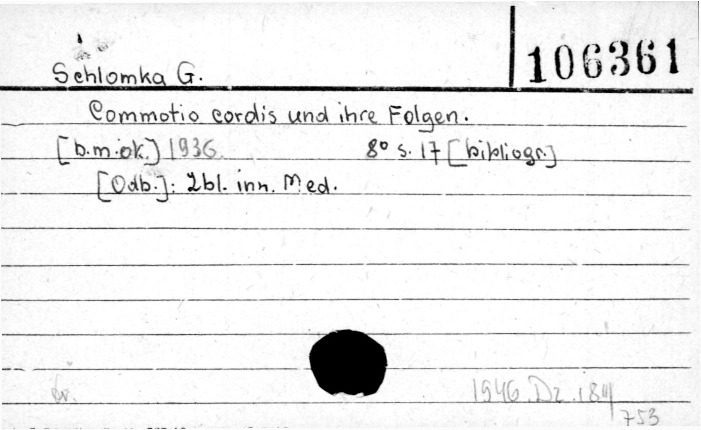 106361
Schlomka G.
Commotio cordis und ihre Folgen.
[b.m.ok.] 1936. 8° s. 17 [bibliogr.]
[Odb.]: Zbl. inn. Med.
1946.Dz.184/753